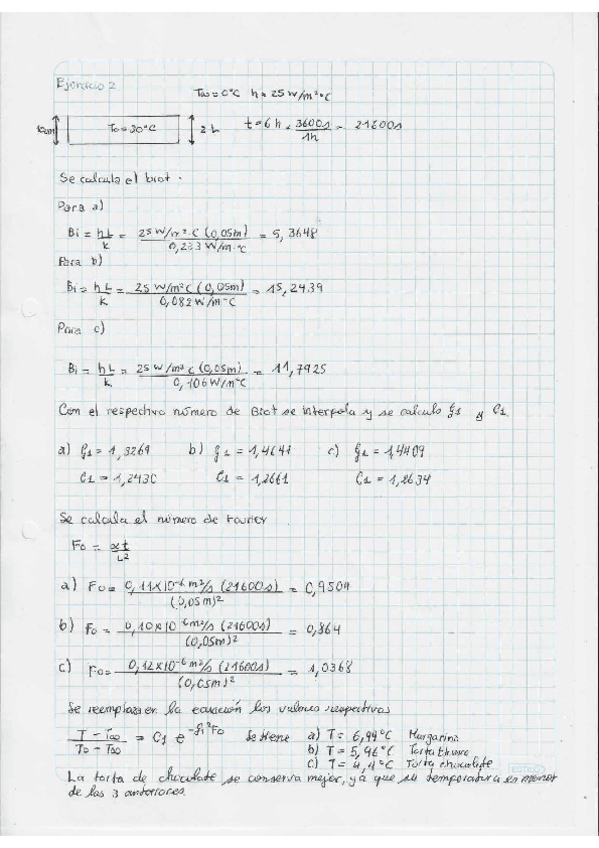 Ejercicio 2
T∞ = 0°C h = 25 W/m²°C
10cm T₀ = 30°C 2L t = 6h × 3600s / 1h = 21600s
Se calcula el biot.
Para a)
Bi = hL/k = 25 W/m²·C (0,05m) / 0,233 W/m·°C = 5,3648
Para b)
Bi = hL/k = 25 W/m²C (0,05m) / 0,082 W/m·C = 15,2439
Para c)
Bi = hL/k = 25 W/m²C (0,05m) / 0,106 W/m°C = 11,7925
Con el respectivo número de Biot se interpola y se calculo ξ₁ y C₁.
a) ξ₁ = 1,3269 b) ξ₁ = 1,4641 c) ξ₁ = 1,4409
C₁ = 1,2430 C₁ = 1,2661 C₁ = 1,2634
Se calcula el número de Fourier
Fo = αt/L²
a) Fo = 0,11x10⁻⁶ m²/s (21600s) / (0,05m)² = 0,9504
b) Fo = 0,10x10⁻⁶ m²/s (21600s) / (0,05m)² = 0,864
c) Fo = 0,12x10⁻⁶ m²/s (21600s) / (0,05m)² = 1,0368
Se reemplaza en la ecuación los valores respectivos
T - T∞ / T₀ - T∞ = C₁ e^-ξ₁²Fo Se tiene a) T = 6,99°C Margarina
b) T = 5,96°C Torta
c) T = 4,4°C Torta chocolate
La torta de chocolate se conserva mejor, ya que su temperatura es menor
de las 3 anteriores.